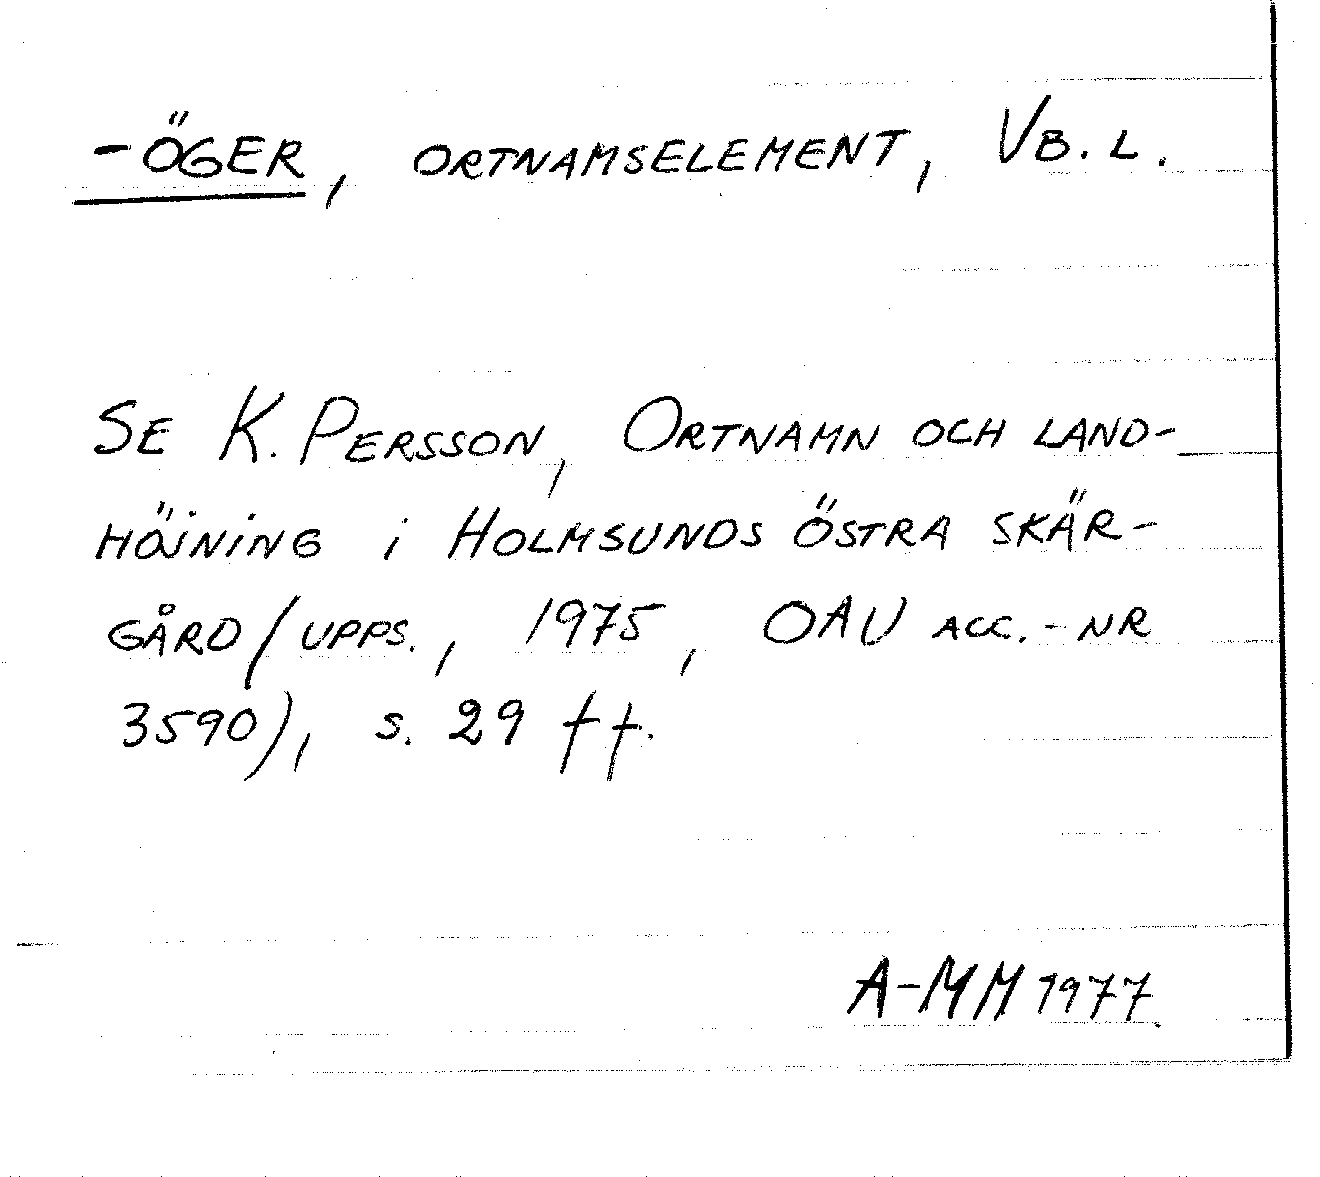 -ÖGER, ORTNAMSELEMENT, VB. L.
SE K. PERSSON, ORTNAMN OCH LAND-
HÖJNING I HOLMSUNDS ÖSTRA SKÄR-
GÅRD/UPPS., 1975, OAU ACC.-NR
3590), S. 29 ff.
A-MM 1977